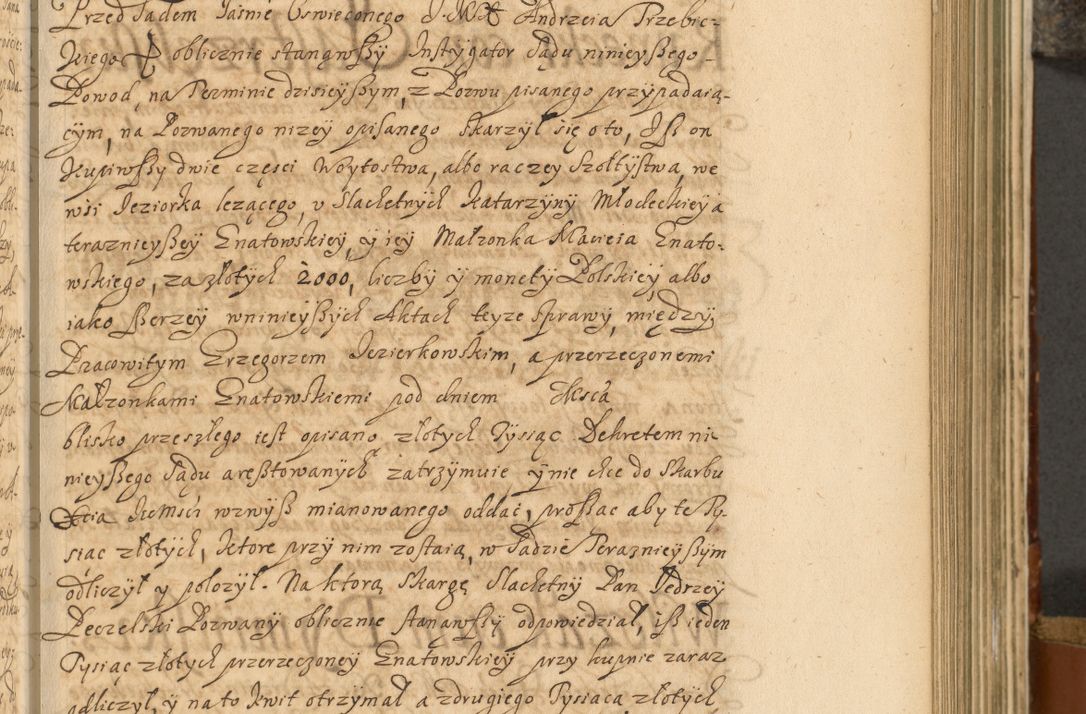 Przed Sądem Jaśnie Oswieconego J. M. X Andrzeia Trzebic-
kiego oblicznie stanąwszy Instygator Sądu ninieyszego
Powod, na Terminie dzisieyszym, z Pozwu pisanego przypadaią-
cym, na Pozwanego nizey opisanego skarzył się o to, Isz on
Kupiwszy dwie częsci Woytostwa, albo raczey Szołtystwa, we
wsi Jeziorka lezącego, v Slachetnych Katarzyny Młodeckiey a
terazniejszey Gnatowskiey, y iey Małzonka Macieia Gnato-
wskiego, za złotych 2000, liczby y monety Polskiey albo
iako szerzey wninieyszych Aktach teyze sprawy, między
Pracowitym Grzegorzem Jezierkowskim, a przerzeczonemi
Małzonkami Gnatowskiemi pod dniem Msca
blisko przeszłego iest opisano, złotych Tysiąc Dekretem ni-
nieyszego Sądu aresztowanych zatrzymuie, y nie chce do Skarbu
Xcia Jeomsci wzwysz mianowanego oddac, prosząc aby te Ty-
siąc złotych, ktore przy nim zostaią, w Sądzie Teraznieyszym
odliczył y położył. Na ktorą Skargę Slachetny Pan Jędrzey
Peczelski Pozwany oblicznie stanąwszy odpowiedział, isz ieden
Tysiąc złotych przerzeczoney Gnatowskiey przy kupnie zaraz
odliczył, y na to kwit otrzymał a zdrugiego Tysiąca złotych